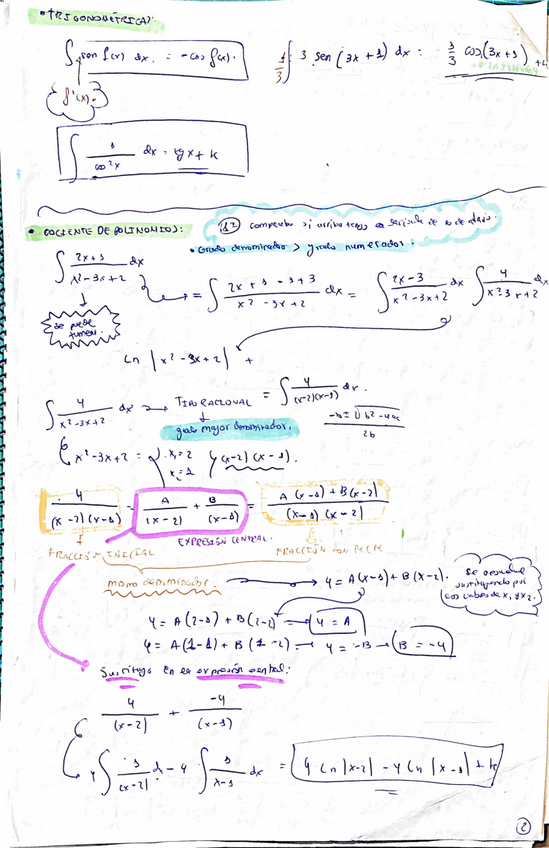 • TRIGONOMÉTRICA):
∫ sen f(x) dx = -cos f(x).
f'(x).
1/3 ∫ 3 sen (3x + 1) dx = -1/3 cos (3x+1) + k
∫ 1/cos²x dx = tg x + k
• COCIENTE DE POLINOMIOS:
1º compruebo si arriba tengo
• Grado denominador > grado numerador.
∫ (2x+1)/(x²-3x+2) dx
= ∫ (2x + 1 - 3 + 3)/(x² - 3x + 2) dx = ∫ (2x - 3)/(x² - 3x + 2) dx ∫ 4/(x² - 3x + 2) dx
se puede
Ln |x² - 3x + 2| +
∫ 4/(x² - 3x + 2) dx → TIPO RACIONAL = ∫ 4/((x-2)(x-1)) dx.
grado mayor denominador.
x² - 3x + 2 = x₁ = 2 x₂ = 1 (x-2)(x-1).
4/((x-2)(x-1)) = A/(x-2) + B/(x-1) = (A(x-1) + B(x-2))/((x-1)(x-2))
EXPRESIÓN CENTRAL.
FRACCIÓN INICIAL
FRACCIÓN con MCM
mismo denominador. → 4 = A(x-1) + B(x-2).
Se resuelve sustituyendo por los valores de x₁ y x₂.
4 = A(2-1) + B(2-2) → 4 = A
4 = A(1-1) + B(1-2) → 4 = -B → B = -4
Sustituyo en la expresión central:
4/(x-2) + -4/(x-1)
4 ∫ 1/(x-2) d - 4 ∫ 1/(x-1) dx = 4 Ln |x-2| - 4 Ln |x-1| + k
2